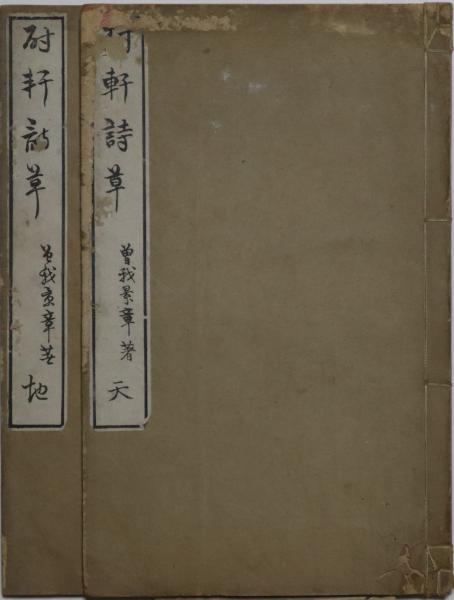 耐軒詩草
曾我景章著
天
耐軒詩草
曾我景章著
地